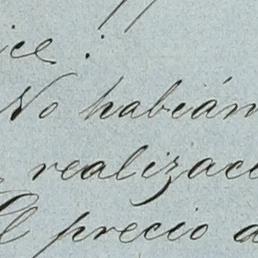 ice :
No habián
realizaci
El precio d